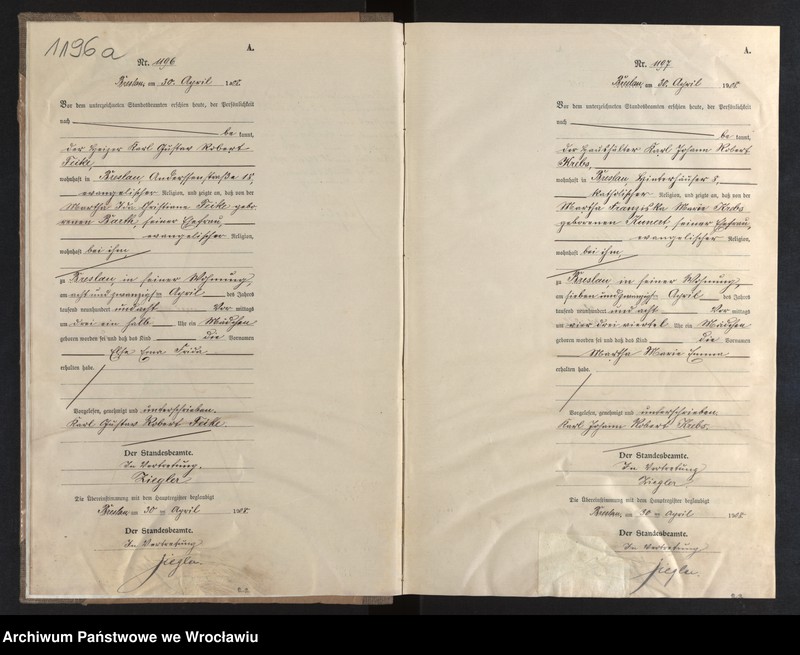 1196a
A.
Nr. 1196
Breslau, am 30. April 1908.
Vor dem unterzeichneten Standesbeamten erschien heute, der Persönlichkeit
nach
be kannt,
der Heizer Karl Gustav Robert
wohnhaft in Breslau, Anderssenstraße 15,
evangelischer Religion, und zeigte an, daß von der
Martha Ida Christiane gebo-
renen seiner Ehefrau,
evangelischer Religion,
wohnhaft bei ihm,
zu Breslau, in seiner Wohnung,
am acht und zwanzigsten April des Jahres
tausend neunhundert und acht Vor mittags
um drei ein halb Uhr ein Mädchen
geboren worden sei und daß das Kind die Vornamen
Else Erna Frida
erhalten habe.
Vorgelesen, genehmigt und unterschrieben.
Karl Gustav Robert
Der Standesbeamte.
In Vertretung.
Ziegler
Die Übereinstimmung mit dem Hauptregister beglaubigt
Breslau, am 30 ten April 1908.
Der Standesbeamte.
In Vertretung
Ziegler.
A.
Nr. 1197
Breslau, am 30. April 1908.
Vor dem unterzeichneten Standesbeamten erschien heute, der Persönlichkeit
nach
be kannt,
der Haushälter Karl Johann Robert
wohnhaft in Breslau, Hinterhäuser 8,
katholischer Religion, und zeigte an, daß von der
Martha Franziska Marie
geborenen seiner Ehefrau,
evangelischer Religion,
wohnhaft bei ihm,
zu Breslau, in seiner Wohnung,
am sieben und zwanzigsten April des Jahres
tausend neunhundert und acht Vor mittags
um vier drei viertel Uhr ein Mädchen
geboren worden sei und daß das Kind die Vornamen
Martha Marie Emma
erhalten habe.
Vorgelesen, genehmigt und unterschrieben.
Karl Johann Robert
Der Standesbeamte.
In Vertretung
Ziegler
Die Übereinstimmung mit dem Hauptregister beglaubigt
Breslau, am 30 ten April 1908.
Der Standesbeamte.
In Vertretung
Ziegler.
Archiwum Państwowe we Wrocławiu